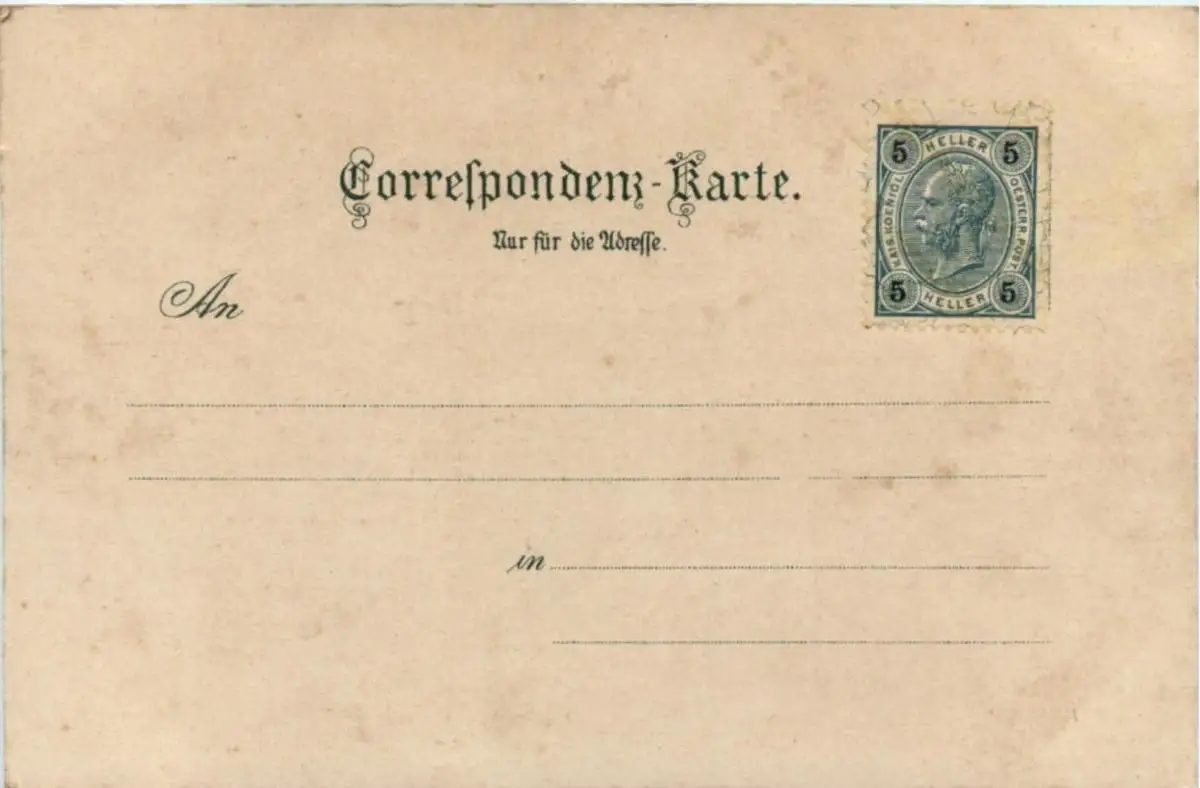 Correſpondenz-Karte.
Nur für die Adreſſe.
An
in
5 HELLER 5
KAIS. KOENIGL. OESTERR. POST
5 HELLER 5